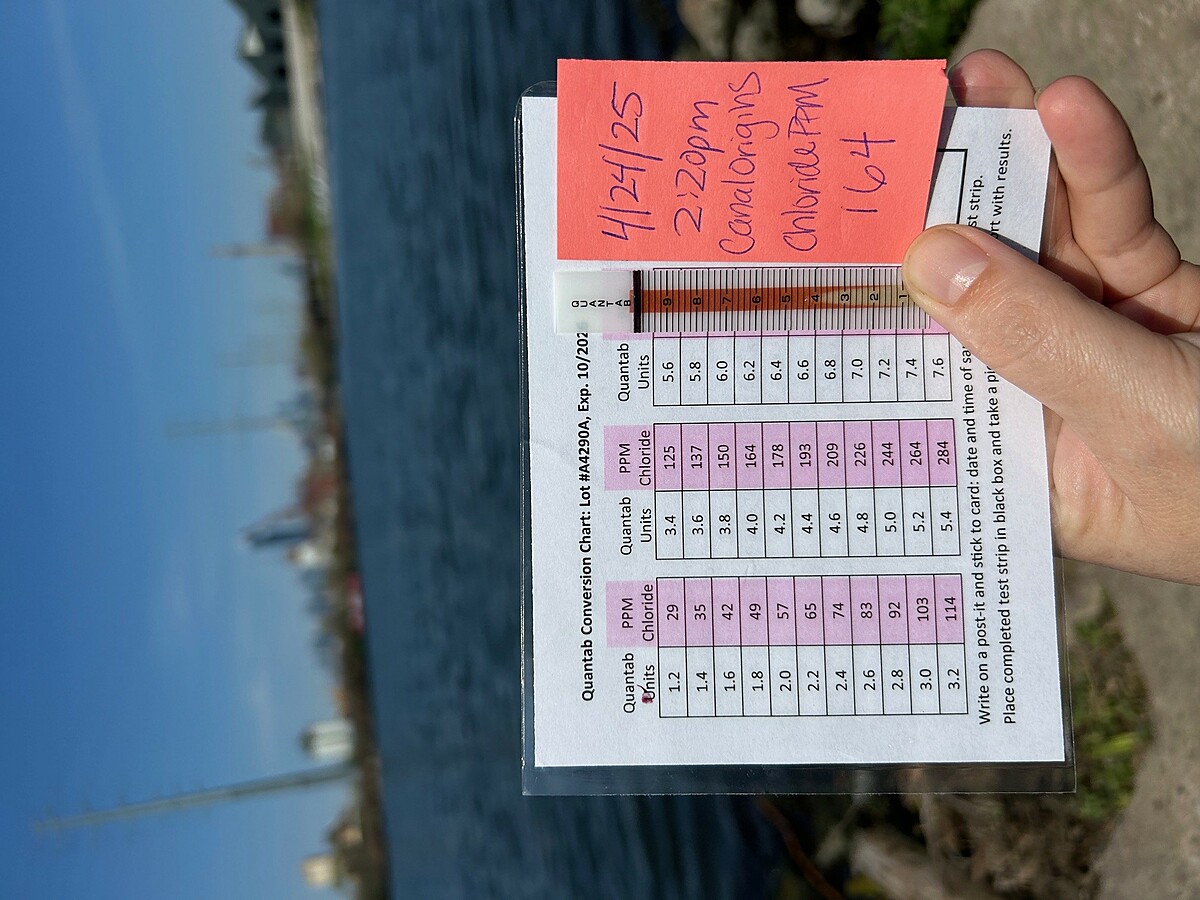 Quantab Conversion Chart: Lot #A4290A, Exp. 10/202
Quantab Units PPM Chloride Quantab Units PPM Chloride Quantab Units
1.2 29 3.4 125 5.6
1.4 35 3.6 137 5.8
1.6 42 3.8 150 6.0
1.8 49 4.0 164 6.2
2.0 57 4.2 178 6.4
2.2 65 4.4 193 6.6
2.4 74 4.6 209 6.8
2.6 83 4.8 226 7.0
2.8 92 5.0 244 7.2
3.0 103 5.2 264 7.4
3.2 114 5.4 284 7.6
QUANTAB
9
8
7
6
5
4
3
2
1
4/24/25
2:20pm
Canal Origins
Chloride PPM
164
Write on a post-it and stick to card: date and time of st strip.
Place completed test strip in black box and take a with results.